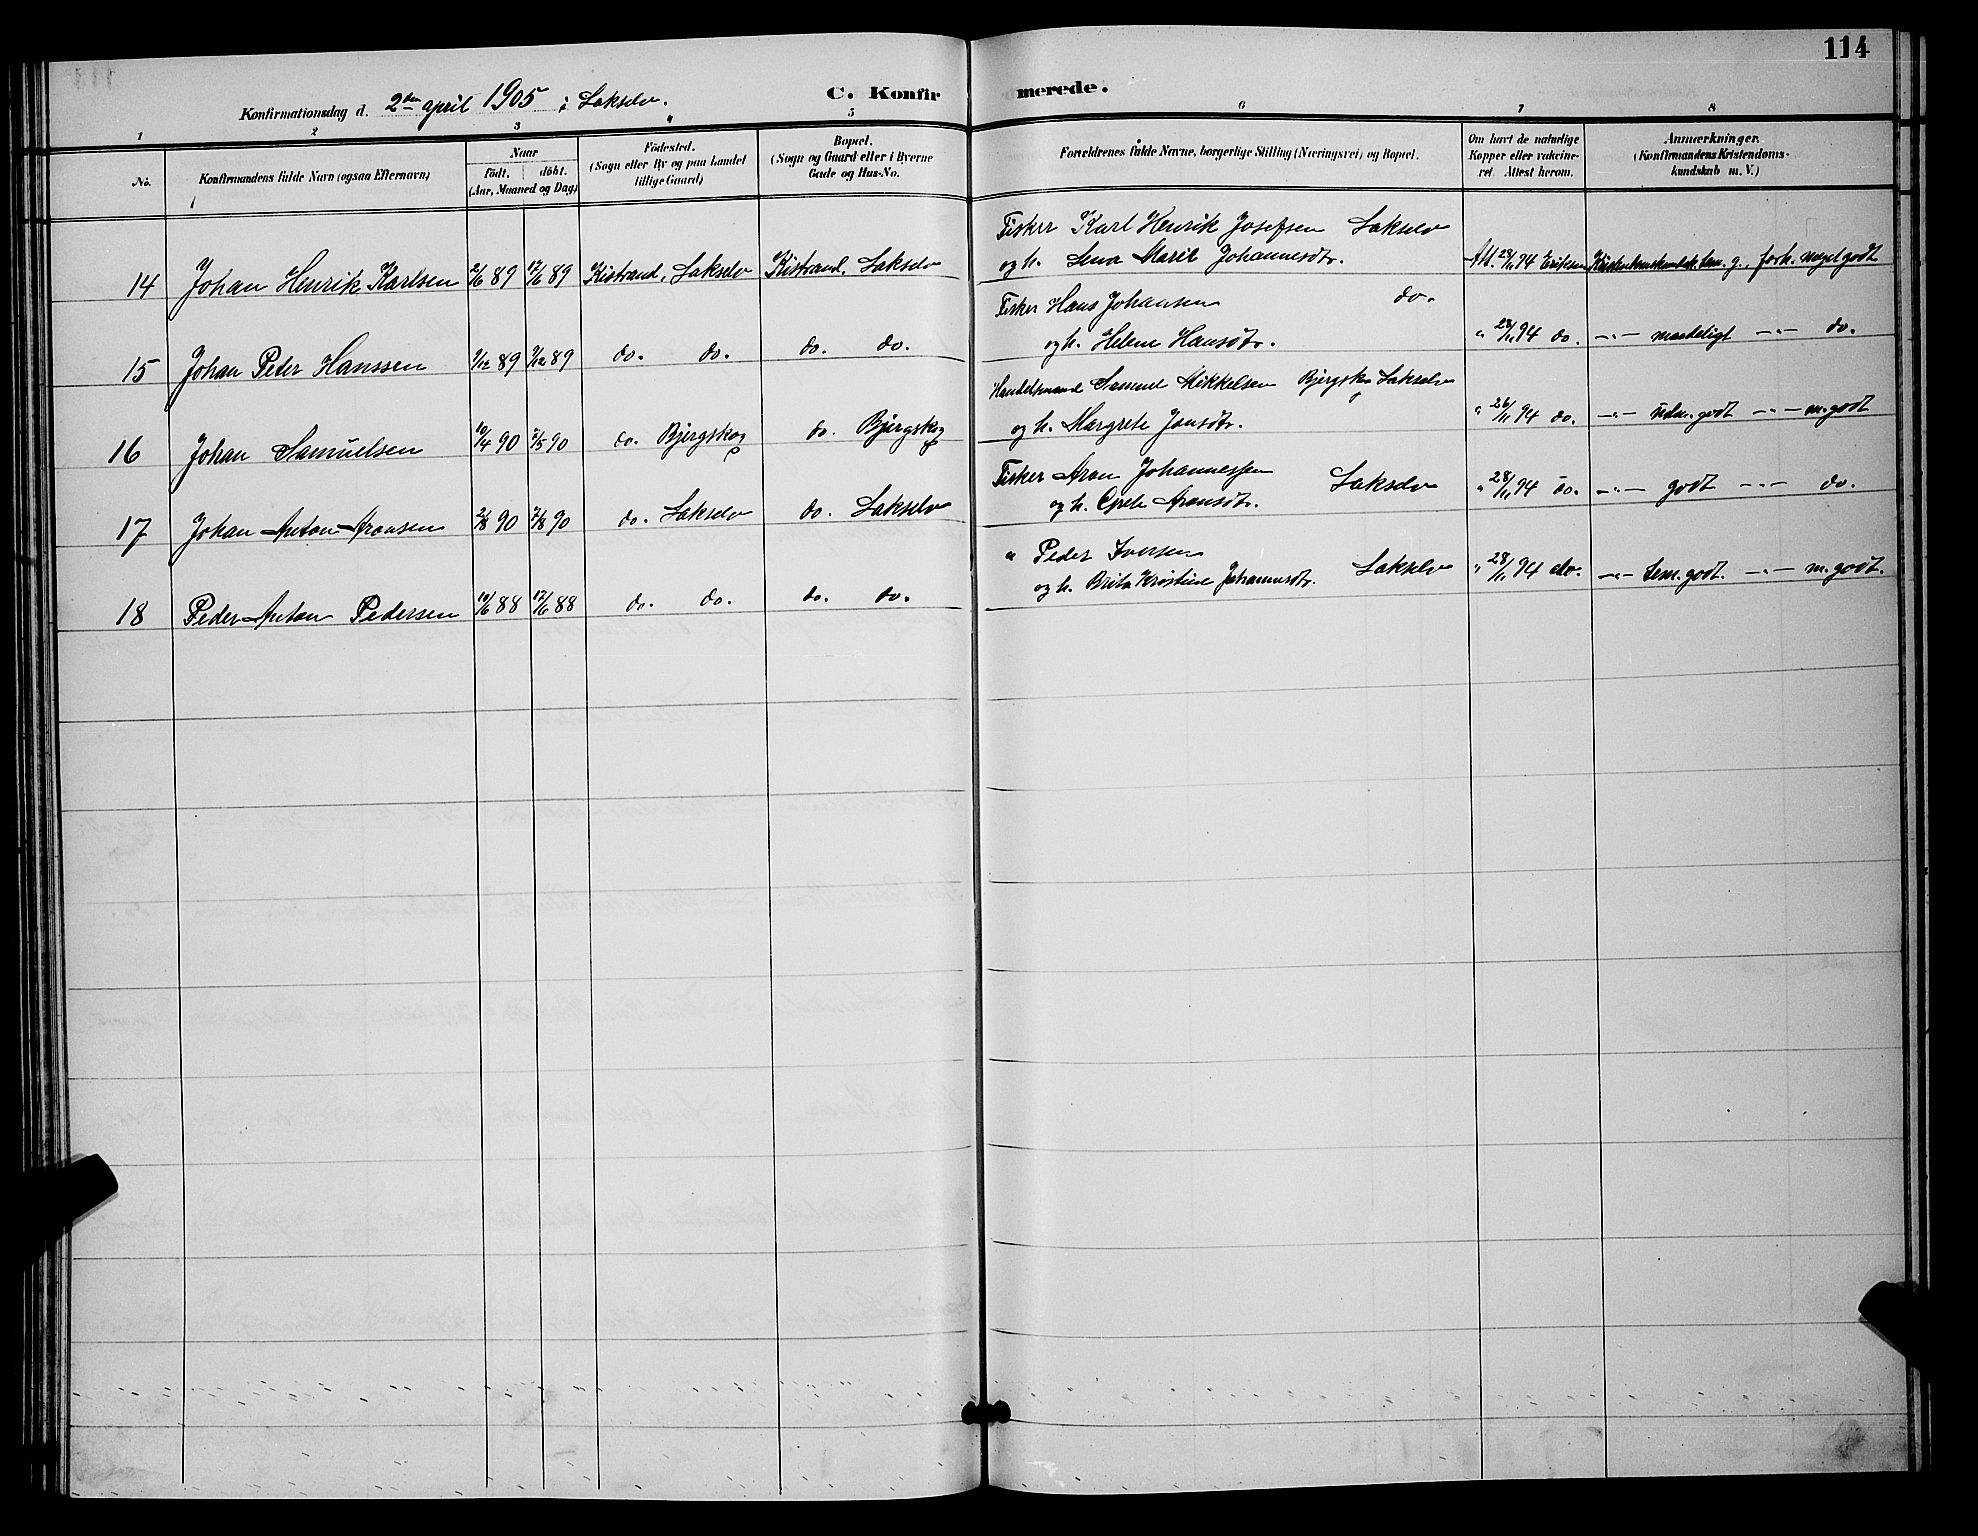 114
Konfirmationsdag d. 2den april 1905 i Lakselv.
C. Konfirmerede.
1 2 3 5 6 7 8
No. Konfirmandens fulde Navn (ogsaa Efternavn)
Naar
födt. döbt.
(Aar, Maaned og Dag)
Födested.
(Sogn eller By og paa Landet
tillige Gaard)
Bopæl.
(Sogn og Gaard eller i Byerne
Gade og Hus-No.
Forældrenes fulde Navne, borgerlige Stilling (Næringsvei) og Bopæl.
Om havt de naturlige
Kopper eller vakcine-
ret. Attest herom.
Anmærkninger.
(Konfirmandens Kristendoms-
kundskab m. V.)
Fisker Karl Henrik Josefsen Lakselv
14 Johan Henrik Karlsen 2/6 89 17/6 89 Kistrand, Lakselv Kistrand, Lakselv og h. Lena Marit Johannesdtr. Att. 28/11 94 Eriksen Kristendomskundsk. tem. g., forh. meget godt
Fisker Hans Johansen do.
15 Johan Peter Hanssen 1/12 89 7/12 89 do. do. do. do. og h. Helene Hansdtr. " 28/11 94 do. -"- maadeligt -"- do.
Handelsmand Samuel Mikkelsen Bjergskog Lakselv
16 Johan Samuelsen 10/4 90 7/5 90 do. Bjergskog do. Bjergskog og h. Margrete Jonsdtr. " 26/11 94 do. -"- udm. godt -"- m. godt
Fisker Aron Johannessen Lakselv
17 Johan Anton Aronsen 2/8 90 7/8 90 do. Lakselv do. Lakselv og h. Grete Aronsdtr. " 28/11 94 do. -"- godt -"- do.
" Peder Iversen Lakselv
18 Peder Anton Pedersen 10/6 88 17/6 88 do. do. do. do. og h. Brita Kristine Johannesdtr. " 28/11 94 do. -"- tem. godt. -"- m. godt.